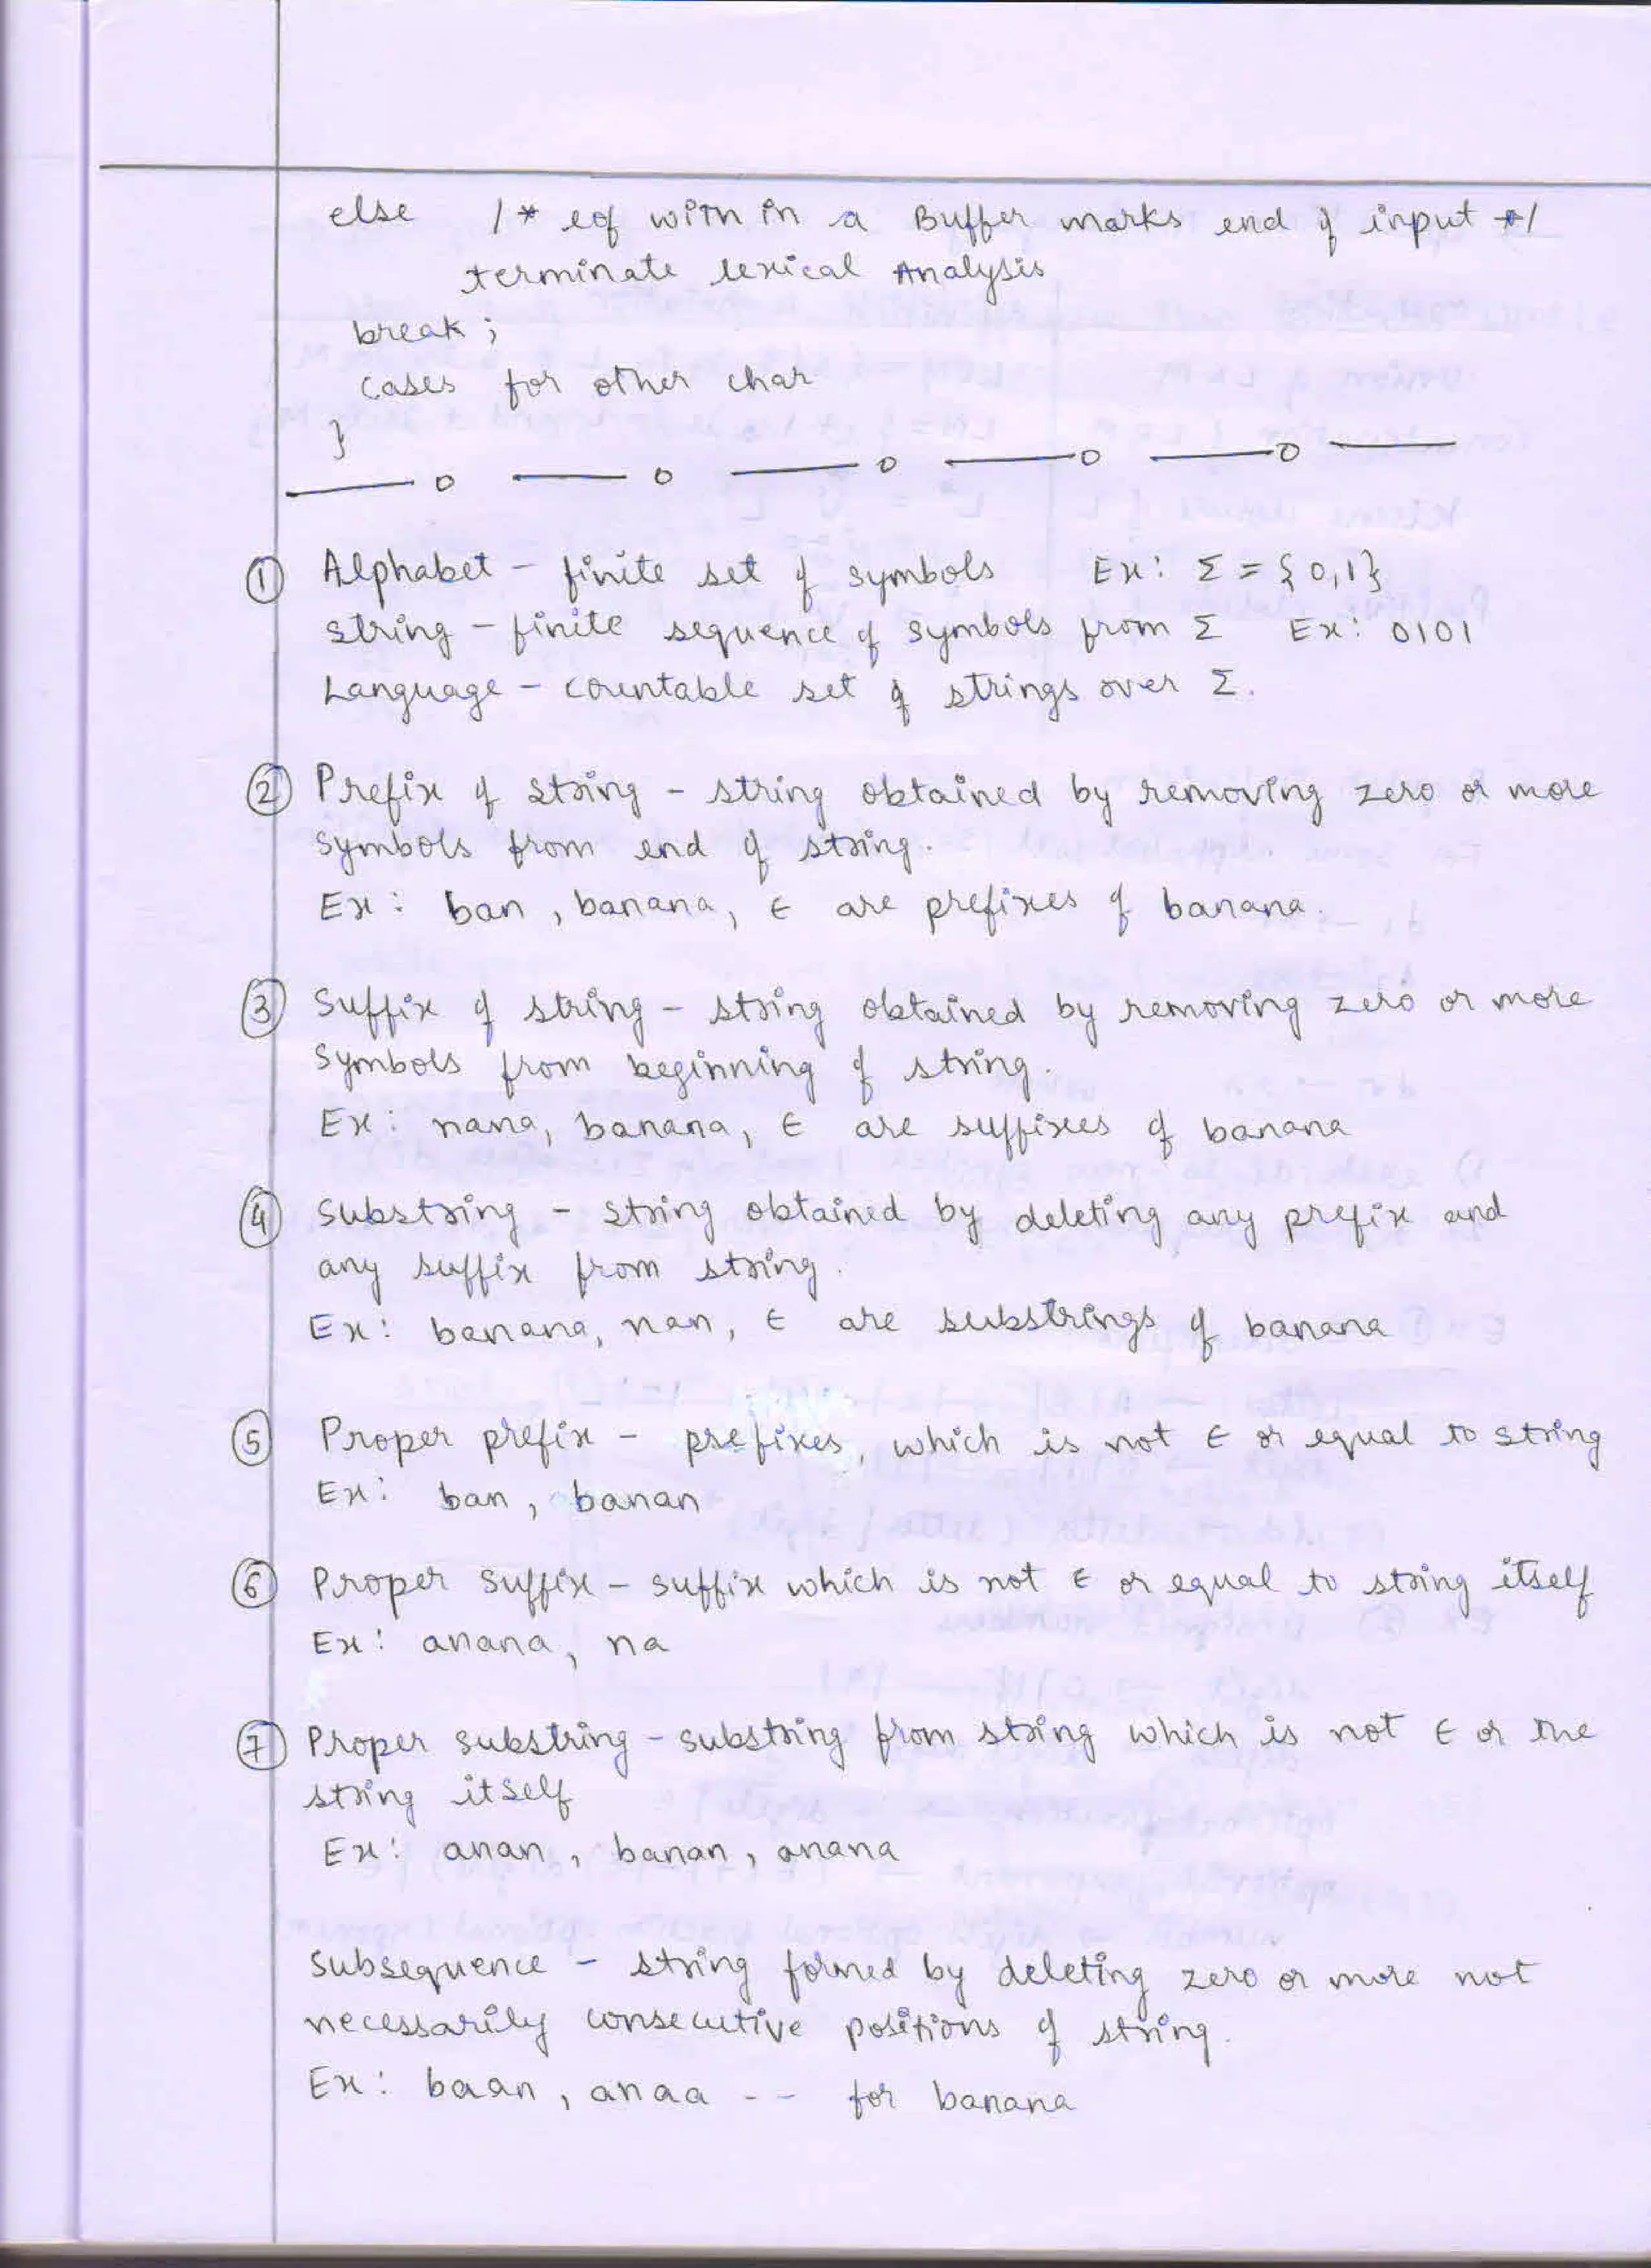 else /* eof with in a Buffer marks end of input */
terminate lexical Analysis
break;
cases for other char
}
① Alphabet - finite set of symbols Ex: Σ = {0,1}
string - finite sequence of symbols from Σ Ex: 0101
Language - countable set of strings over Σ.
② Prefix of string - string obtained by removing zero or more
symbols from end of string.
Ex: ban, banana, ϵ are prefixes of banana.
③ Suffix of string - string obtained by removing zero or more
symbols from beginning of string.
Ex: nana, banana, ϵ are suffixes of banana
④ Substring - string obtained by deleting any prefix and
any suffix from string.
Ex: banana, nan, ϵ are substrings of banana
⑤ Proper prefix - prefixes, which is not ϵ or equal to string
Ex: ban, banan
⑥ Proper suffix - suffix which is not ϵ or equal to string itself
Ex: anana, na
⑦ Proper substring - substring from string which is not ϵ or the
string itself
Ex: anan, banan, anana
Subsequence - string formed by deleting zero or more not
necessarily consecutive positions of string.
Ex: baan, anaa -- for banana